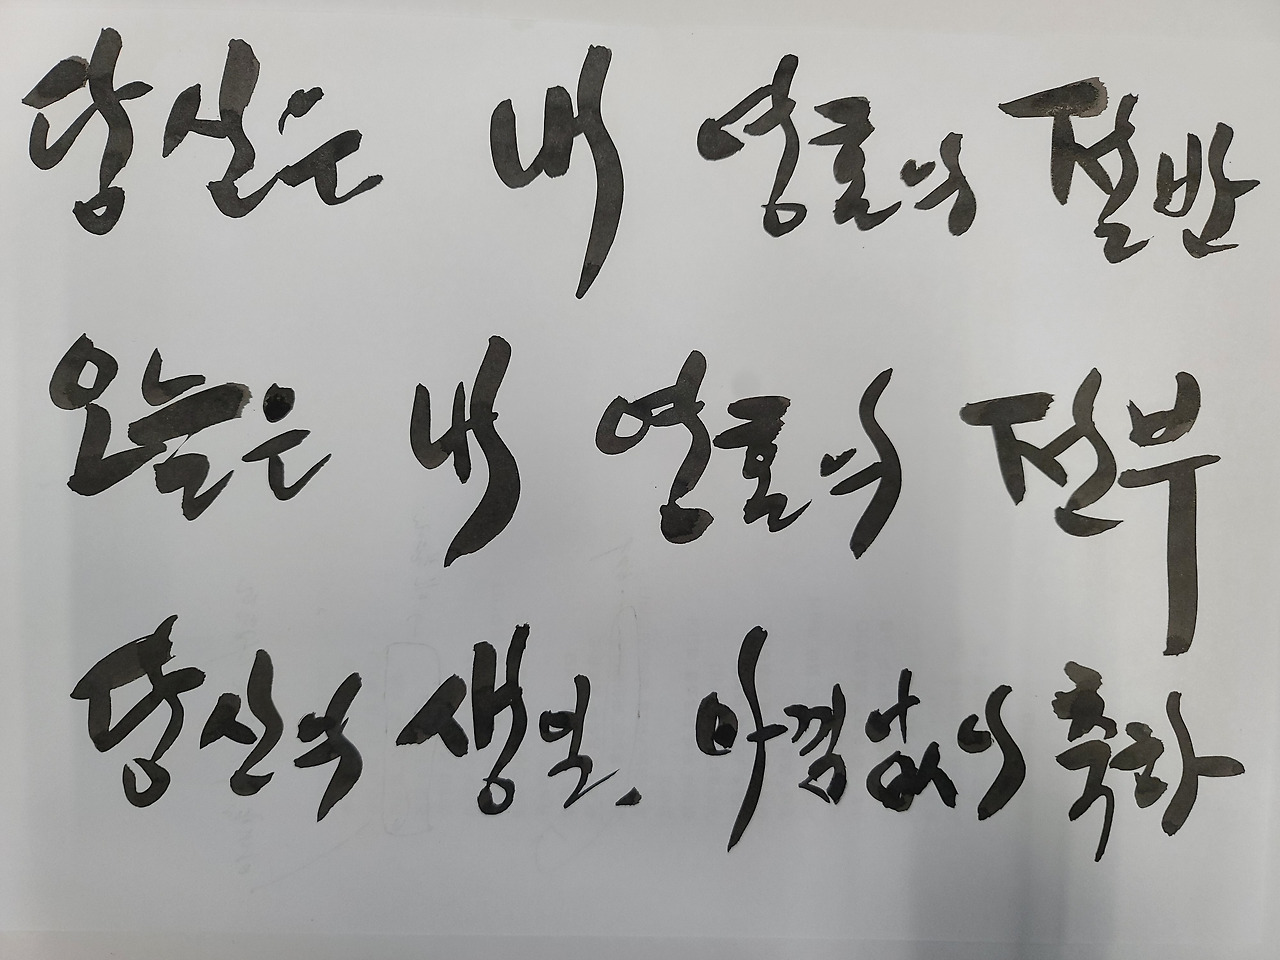 당신은 내 영혼의 절반
오늘은 내 영혼의 전부
당신의 생일. 아낌없이 축하